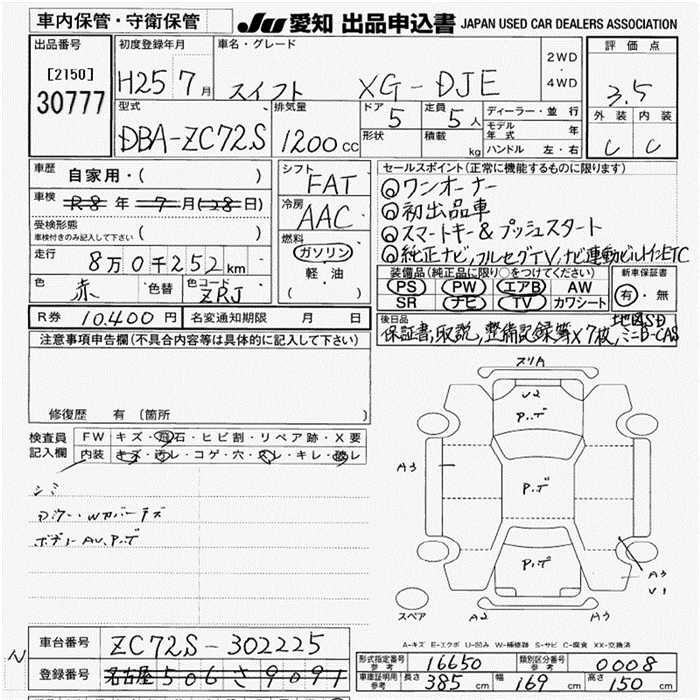 車内保管・守衛保管
JU 愛知 出品申込書 JAPAN USED CAR DEALERS ASSOCIATION
出品番号
[2150]
30777
初度登録年月
H25 7月
車名・グレード
スイフト XG-DJE
2WD
・
4WD
評価点
3.5
外装 内装
C C
型式
DBA-ZC72S
排気量
1200cc
ドア 5
定員 5人
形状
積載 kg
ディーラー・並行
モデル年式 年
ハンドル 左・右
車歴 自家用・( )
車検 R8年 7月(28日)
受検形態
車検付きのみ記入して下さい ( )
走行 8万0千252km
色 赤 色替 色コード ZRJ
シフト FAT
冷房 AAC
燃料
ガソリン
軽・油
( )
セールスポイント(正常に機能するものに限ります)
ワンオーナー
初出品車
スマートキー&プッシュスタート
純正ナビ,フルセグTV,ナビ連動ビルトインETC
装備品(純正品に限り○をつけてください)
PS PW エアB AW
SR ナビ TV カワシート
新車保証書
有・無
R券 10,400円
名変通知期限 月 日
後日品
地図SD
保証書,取説,整備記録簿×7枚,ミニB-CAS
注意事項申告欄(不具合内容等は具体的に記入して下さい)
修復歴 有 (箇所
検査員
記入欄
FW キズ・飛石・ヒビ割・リペア跡・X要
内装 キズ・汚レ・コゲ・穴・スレ・キレ・破レ
シミ
ボデーAU,P,デ
スリA
U2
P.デ
A3
P.デ
P.デ
A3
U1
スペア
A2
A3
A-キズ E-エクボ U-凹み W-補修跡 S-サビ C-腐食 XX-交換済
車台番号 ZC72S-302225
登録番号 名古屋 506 さ 9091
形式指定番号
参考 16650
類別区分番号
参考 0008
車庫証明用
参考 長さ 385cm 幅 169cm 高さ 150cm